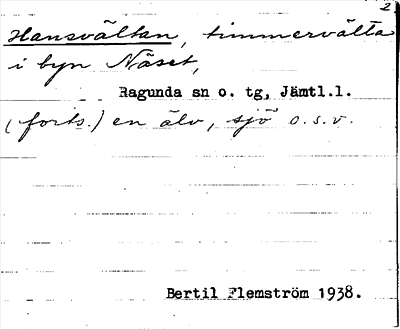 2
Hansvältan, timmervälta
i byn Näset,
Ragunda sn o. tg, Jämtl.l.
(forts.) en älv, sjö o.s.v.
Bertil Flemström 1938.